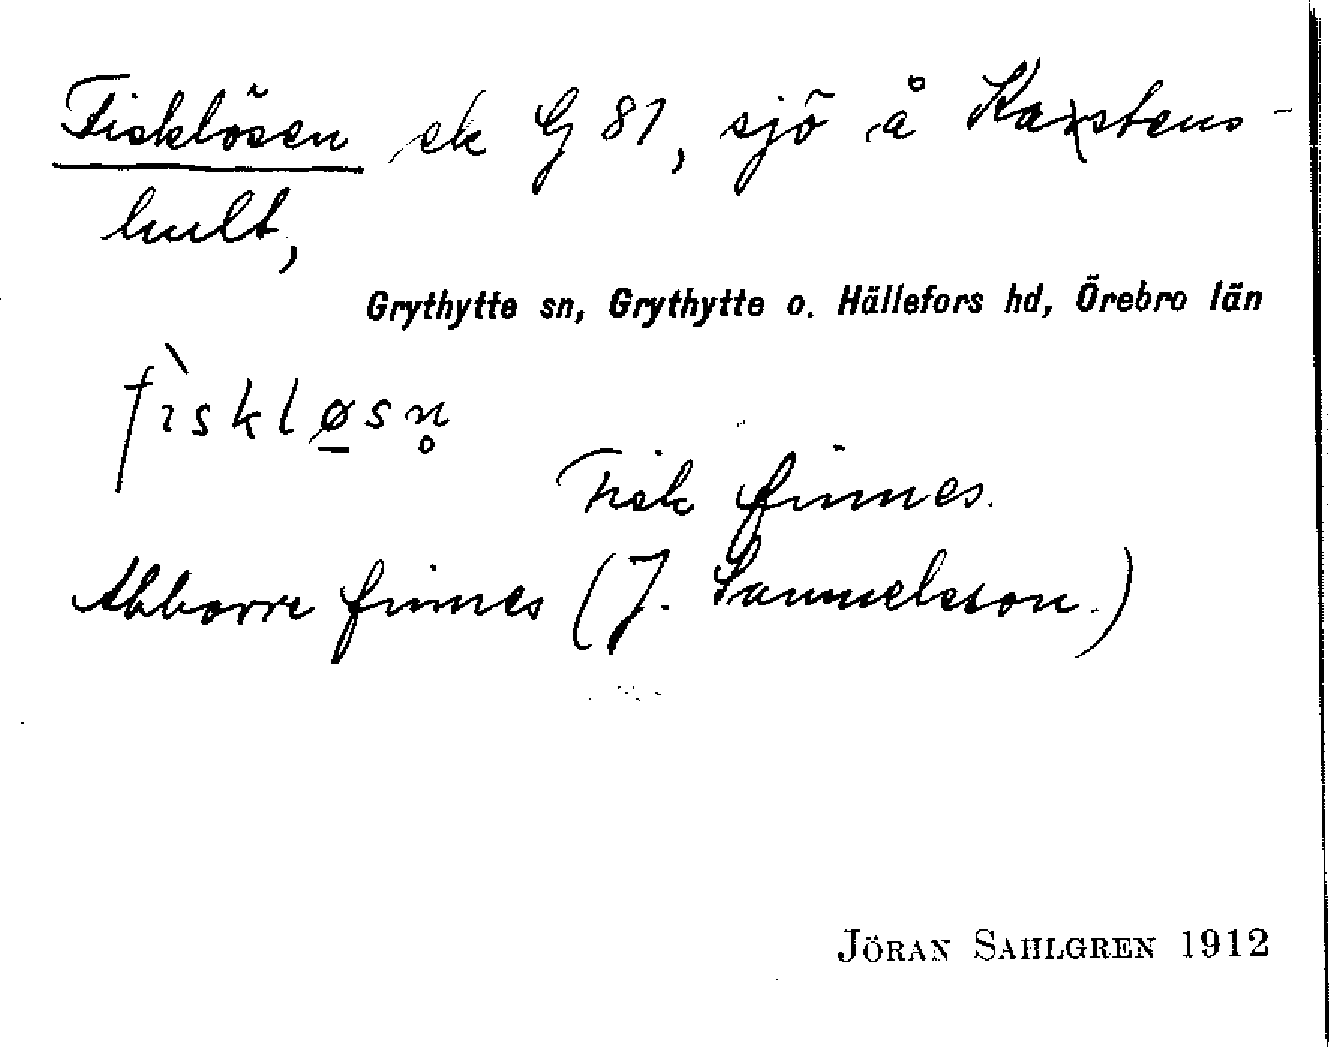 Fisklösen ek G 81, sjö å Kaxstens-
hult,
Grythytte sn, Grythytte o. Hällefors hd, Örebro län
fìsklø̲sn̥
Fisk finnes.
Abborre finnes (J. Samuelsson.)
JÖRAN SAHLGREN 1912